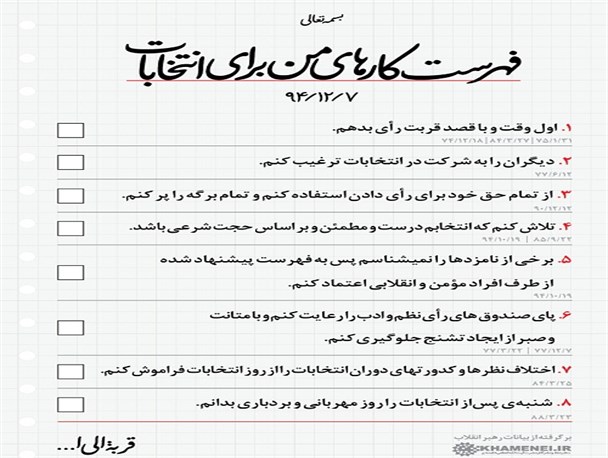 بسمه‌تعالی
فهرست کارهای من برای انتخابات
۹۴/۱۲/۷
۱. اول وقت و با قصد قربت رأی بدهم.
۷۴/۱۲/۱۸ | ۸۴/۳/۲۷ | ۷۵/۱/۳۱
۲. دیگران را به شرکت در انتخابات ترغیب کنم.
۷۷/۶/۱۲
۳. از تمام حق خود برای رأی دادن استفاده کنم و تمام برگه را پر کنم.
۹۰/۱۲/۱۲
۴. تلاش کنم که انتخابم درست و مطمئن و بر اساس حجت شرعی باشد.
۹۴/۱۰/۱۹ | ۸۵/۹/۲۲
۵. برخی از نامزدها را نمیشناسم پس به فهرست پیشنهاد شده
از طرف افراد مؤمن و انقلابی اعتماد کنم.
۹۴/۱۰/۱۹
۶. پای صندوق‌های رأی نظم و ادب را رعایت کنم و با متانت
و صبر از ایجاد تشنج جلوگیری کنم.
۷۷/۳/۲۲ | ۷۷/۱۲/۷
۷. اختلاف نظرها و کدورتهای دوران انتخابات را از روز انتخابات فراموش کنم.
۸۴/۳/۲۵
۸. شنبه‌ی پس از انتخابات را روز مهربانی و بردباری بدانم.
۸۸/۳/۲۳
برگرفته از بیانات رهبر انقلاب
KHAMENEI.IR
قربة الی ا...